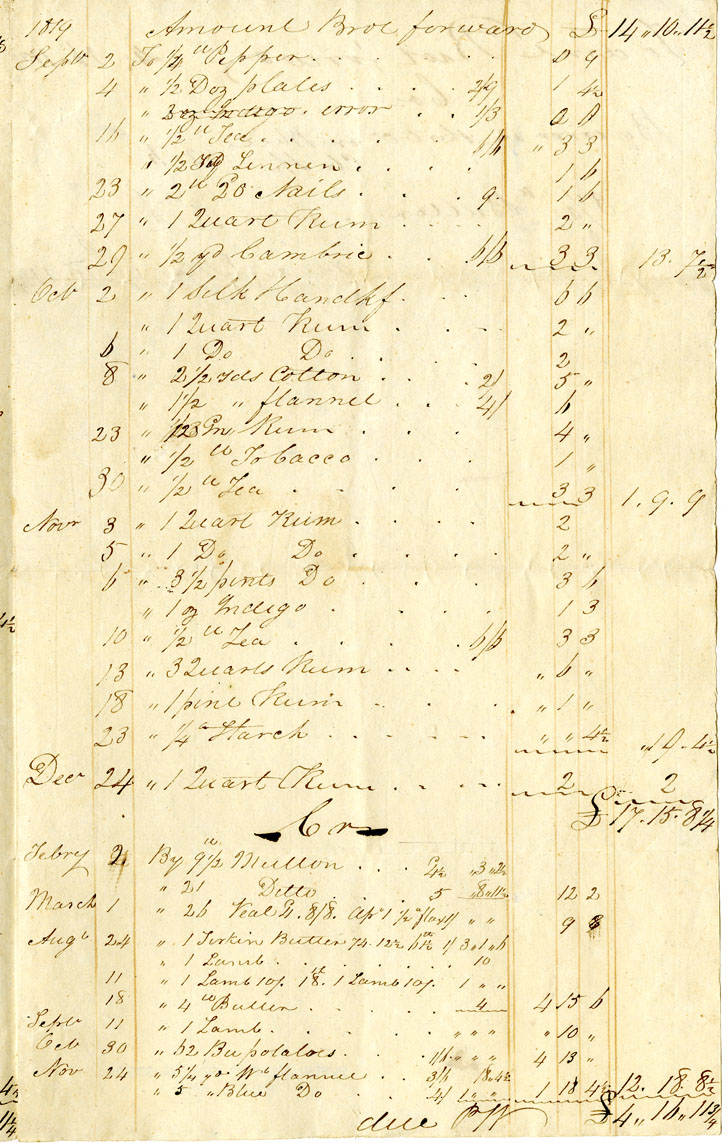 1819 Amount Brot forward £ 14 " 10 " 11½
Septr 2 To ¼ lb Pepper . . . . 0 9
4 " ½ Doz plates . . . 2/9 1 4½
" 3 oz Indigo . error . . 1/3 0 0
16 " ½ lb Tea . . . . . 6/6 " 3 3
" ½ yd Linnen . . . 1 6
23 " 2 lb 20 Nails . . . . 9 1 6
27 " 1 Quart Rum . . . . 2 "
29 " ½ yd Cambric . . . 6/6 3 3 13 . 7½
Oct 2 " 1 Silk Handkf . . . . 6 6
" 1 Quart Rum . . . . 2 "
6 " 1 Do Do . . . . 2
8 " 2½ yds Cotton . . . 2/ 5 "
" 1½ " flannel . . . 4/ 6
23 " Rum . . . . 4 "
" ½ lb Tobacco . . . . 1 "
30 " ½ lb Tea . . . . 3 3 1 . 9 . 9
Novr 3 " 1 Quart Rum . . . . 2
5 " 1 Do Do . . . . 2 "
6 " 3½ pints Do . . . . 3 6
" 1 oz Indigo . . . . 1 3
10 " ½ lb Tea . . . . 6/6 3 3
13 " 3 Quarts Rum . . . . " 6 "
18 " 1 pint Rum . . . . " 1 "
23 " ¼ lb Starch . . . . " " 4½ " 19 . 4½
Decr 24 " 1 Quart Rum . . . . 2 2
£ 17 . 15 . 8¼
Cr
Febry 2 By 9½ lb Mutton . . . 4½ " 3 " 2½
" 21 Ditto 5 " 8 " 11½ 12 2
March 1 " 26 Veal 8/8 . 1½ lb flax " " 9 8
Augt 24 " 1 Firkin Butter 74 . 12½ 61½ 1/ 3 " 1 " 6
" 1 Lamb . . . . . 10
11 " 1 Lamb 10/. 18th . 1 Lamb 10/. 1 " "
18 " 4 lb Butter . . . . 4 4 15 6
Septr 11 " 1 Lamb . . . . " " " " 10 "
Oct 30 " 62 Bu potatoes . . . 1/6 " " " 4 13 "
Nov 24 " 5¼ yds We flannel . . . 3/6 18 " 4½
" 5 " Blue Do . . . 4/ 1 " " " 1 18 4½ 12 . 18 . 8½
due £ 4 " 16 " 11¾